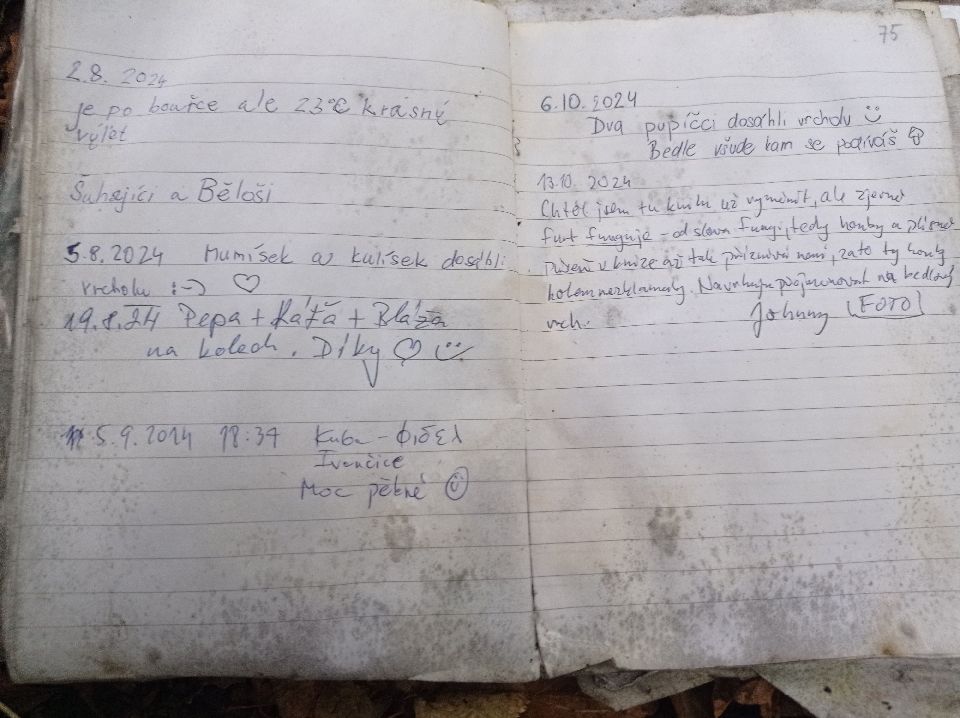 2.8. 2024
je po bouřce ale 23°C krásný
výlet
Šuhajíci a Běloši
5.8.2024 Mumíšek a kulíšek dosáhli
vrcholu :-) ♡
19.8.24 Pepa + Káťa + Bláža
na kolech. Díky ♡
5.9.2014 18:34 Kuba - ΦΙδελ
Ivančice
Moc pěkné ☺
75
6.10.2024
Dva pupíčci dosáhli vrcholu
Bedle všude kam se podíváš
13.10. 2024
Chtěl jsem tu knihu už vyměnit, ale zjevně
furt funguje - od slova Fungi, tedy houby a plísně
v knize až tak příznivá není, zato ty houby
kolem nezklamaly. Navrhuju přejmenovat na bedlový
vrch. Johnny (FOTO)